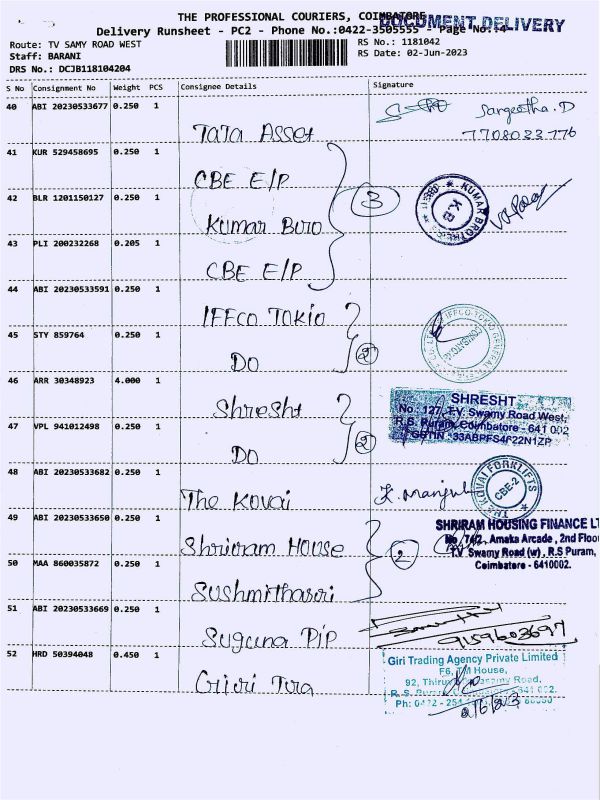 THE PROFESSIONAL COURIERS, COIMBATORE
DOCUMENT DELIVERY
Delivery Runsheet - PC2 - Phone No.:0422-3505555 - Page No.:4
Route: TV SAMY ROAD WEST
RS No.: 1181042
Staff: BARANI
RS Date: 02-Jun-2023
DRS No.: DCJB118104204
S No Consignment No Weight PCS Consignee Details Signature
40 ABI 20230533677 0.250 1
Tata Asset
Sangeetha.D
7708033776
41 KUR 529458695 0.250 1
CBE E/P
42 BLR 1201150127 0.250 1
Kumar Biro
3
KUMAR BROTHERS
K.B
43 PLI 200232268 0.205 1
CBE E/P
44 ABI 20230533591 0.250 1
IFFCO TOKIO
IFFCO-TOKIO GENERAL
45 STY 859764 0.250 1
DO
2
46 ARR 30348923 4.000 1
Shresht
SHRESHT
No.: 127, T.V. Swamy Road West,
R.S. Puram, Coimbatore - 641 002
GSTIN : 33ABPFS4F22N1ZP
47 VPL 941012498 0.250 1
DO
2
48 ABI 20230533682 0.250 1
The Kovai
THE KOVAI FORKLIFTS
CBE-2
49 ABI 20230533650 0.250 1
Shriram House
2
SHRIRAM HOUSING FINANCE LT
No 74/2, Amaka Arcade, 2nd Floor
T.V Swamy Road (w), R.S Puram,
Coimbatore - 6410002.
50 MAA 860035872 0.250 1
51 ABI 20230533669 0.250 1
Suguna PIP
9159603697
52 HRD 50394048 0.450 1
Giri Trading Agency Private Limited
F6, TM House,
92, Thiru Swamy Road,
R. S. Puram 641 002.
Ph: 0422 - 254
2/6/23